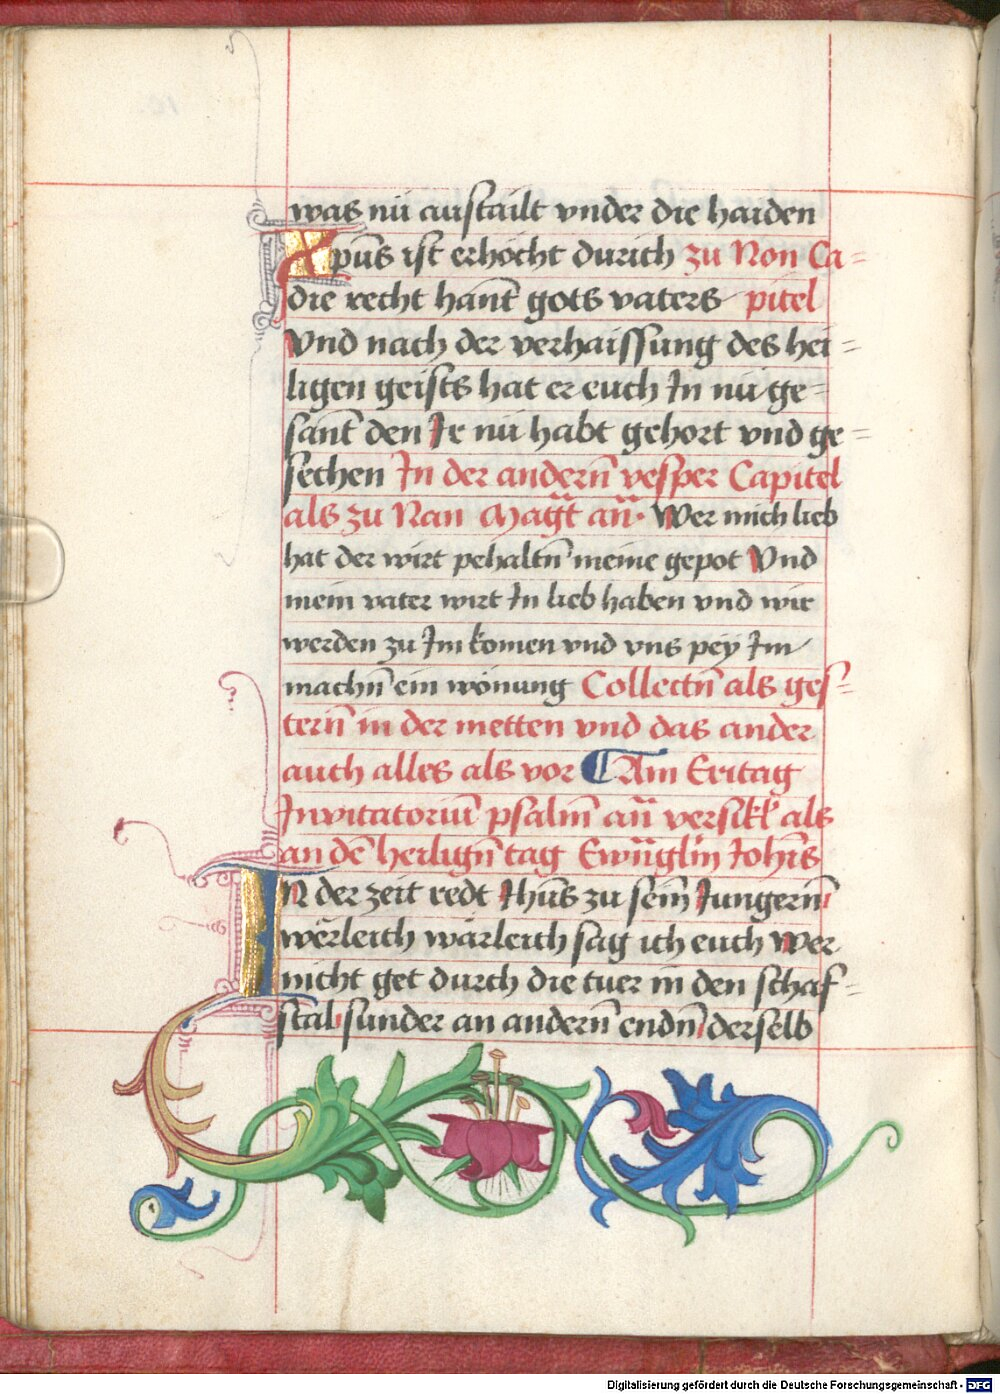 was nü austailt vnder die haiden
Xp̄us ist erhöcht durich zu Non Ca=
die recht hant̄ gots vaters pitel
Vnd nach der verhaissung des hei=
ligen geists hat er euch In nü ge=
sant̄ den Ir nü habt gehort vnd ge=
sechen In der andern̄ vesper Capitel
als zu Nan Magt̄ an̄. Wer mich lieb
hat der wirt pehaltn̄ meine gepot Vnd
mein vater wirt In lieb haben vnd wir
werden zu Im komen vnd vns pey Im
machn̄ ein wonung Collectn̄ als ges=
tern̄ in der metten vnd das ander
auch alles als vor Am Eritag
Invitatoriu̅ psalm̄ an̄ versikl̄ als
an de̅ heilign̄ tag Ewn̄gli̅n Ioh̅is
IN der zeit redt Ih̅us zu sein̄ Iungern̄
werleich wärleich sag ich euch wer
nicht get durch die tuer in den schaf=
stal sunder an andern̄ endn̄ derselb
Digitalisierung gefördert durch die Deutsche Forschungsgemeinschaft - DFG